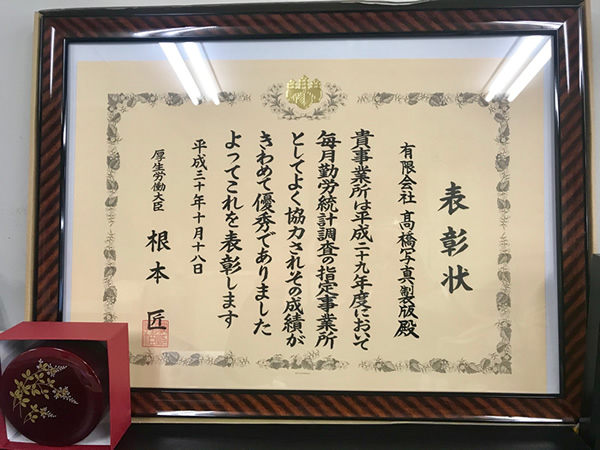 表彰状
有限会社 髙橋写真製版殿
貴事業所は平成二十九年度において
毎月勤労統計調査の指定事業所
としてよく協力されその成績が
きわめて優秀でありました
よってこれを表彰します
平成三十年十月十八日
厚生労働大臣 根本 匠